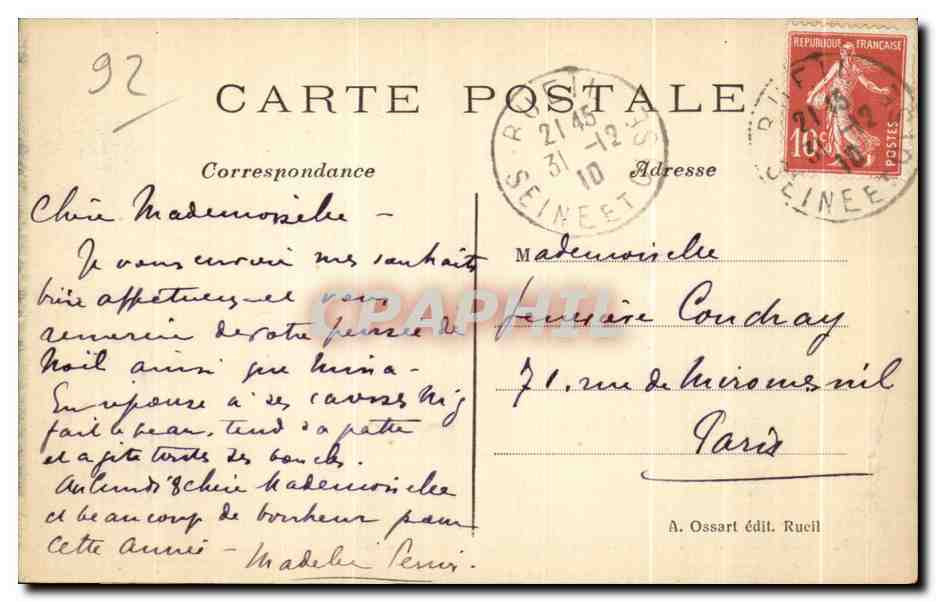 92
CARTE POSTALE
RUEIL
21 45
31 -12
10
SEINE ET O SE
REPUBLIQUE FRANÇAISE
10c
POSTES
RUEIL
21 45
31 -12
10
SEINE ET O
Correspondance
Adresse
Chère Mademoiselle -
Je vous envoie mes souhaits
bien affectueux et vous
remercie de votre pensée de
Noël ainsi que Mina -
En réponse à ses caresses Mig
fait le beau, tend sa patte
et agite toutes ses boucles.
Au lundi 8 chère Mademoiselle
et beaucoup de bonheur pour
cette année -
Mademoiselle
Coudray
71. rue de Miromesnil
Paris
A. Ossart édit. Rueil
CPAPHIL